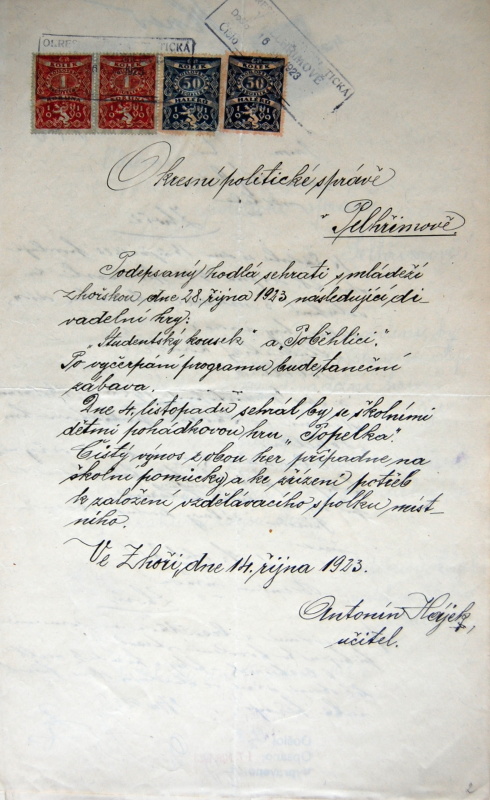 OKRES POLITICKÁ
1923
KOLEK
KOLEK
KOLEK
50
HALÉŘŮ
KOLEK
50
HALÉŘŮ
Okresní politické správě
v Pelhřimově.
Podepsaný hodlá sehrati s mládeží
zhořskou dne 28. října 1923 následující di-
vadelní hry:
„Studentský kousek" a „Poběhlíci".
Po vyčerpání programu bude taneční
zábava.
Dne 4. listopadu sehrál by se školními
dětmi pohádkovou hru „Popelka".
Čistý výnos z obou her případne na
školní pomůcky a ke zřízení potřeb
k založení vzdělávacího spolku míst-
ního.
Ve Zhoři, dne 14. října 1923.
Antonín
učitel.
2